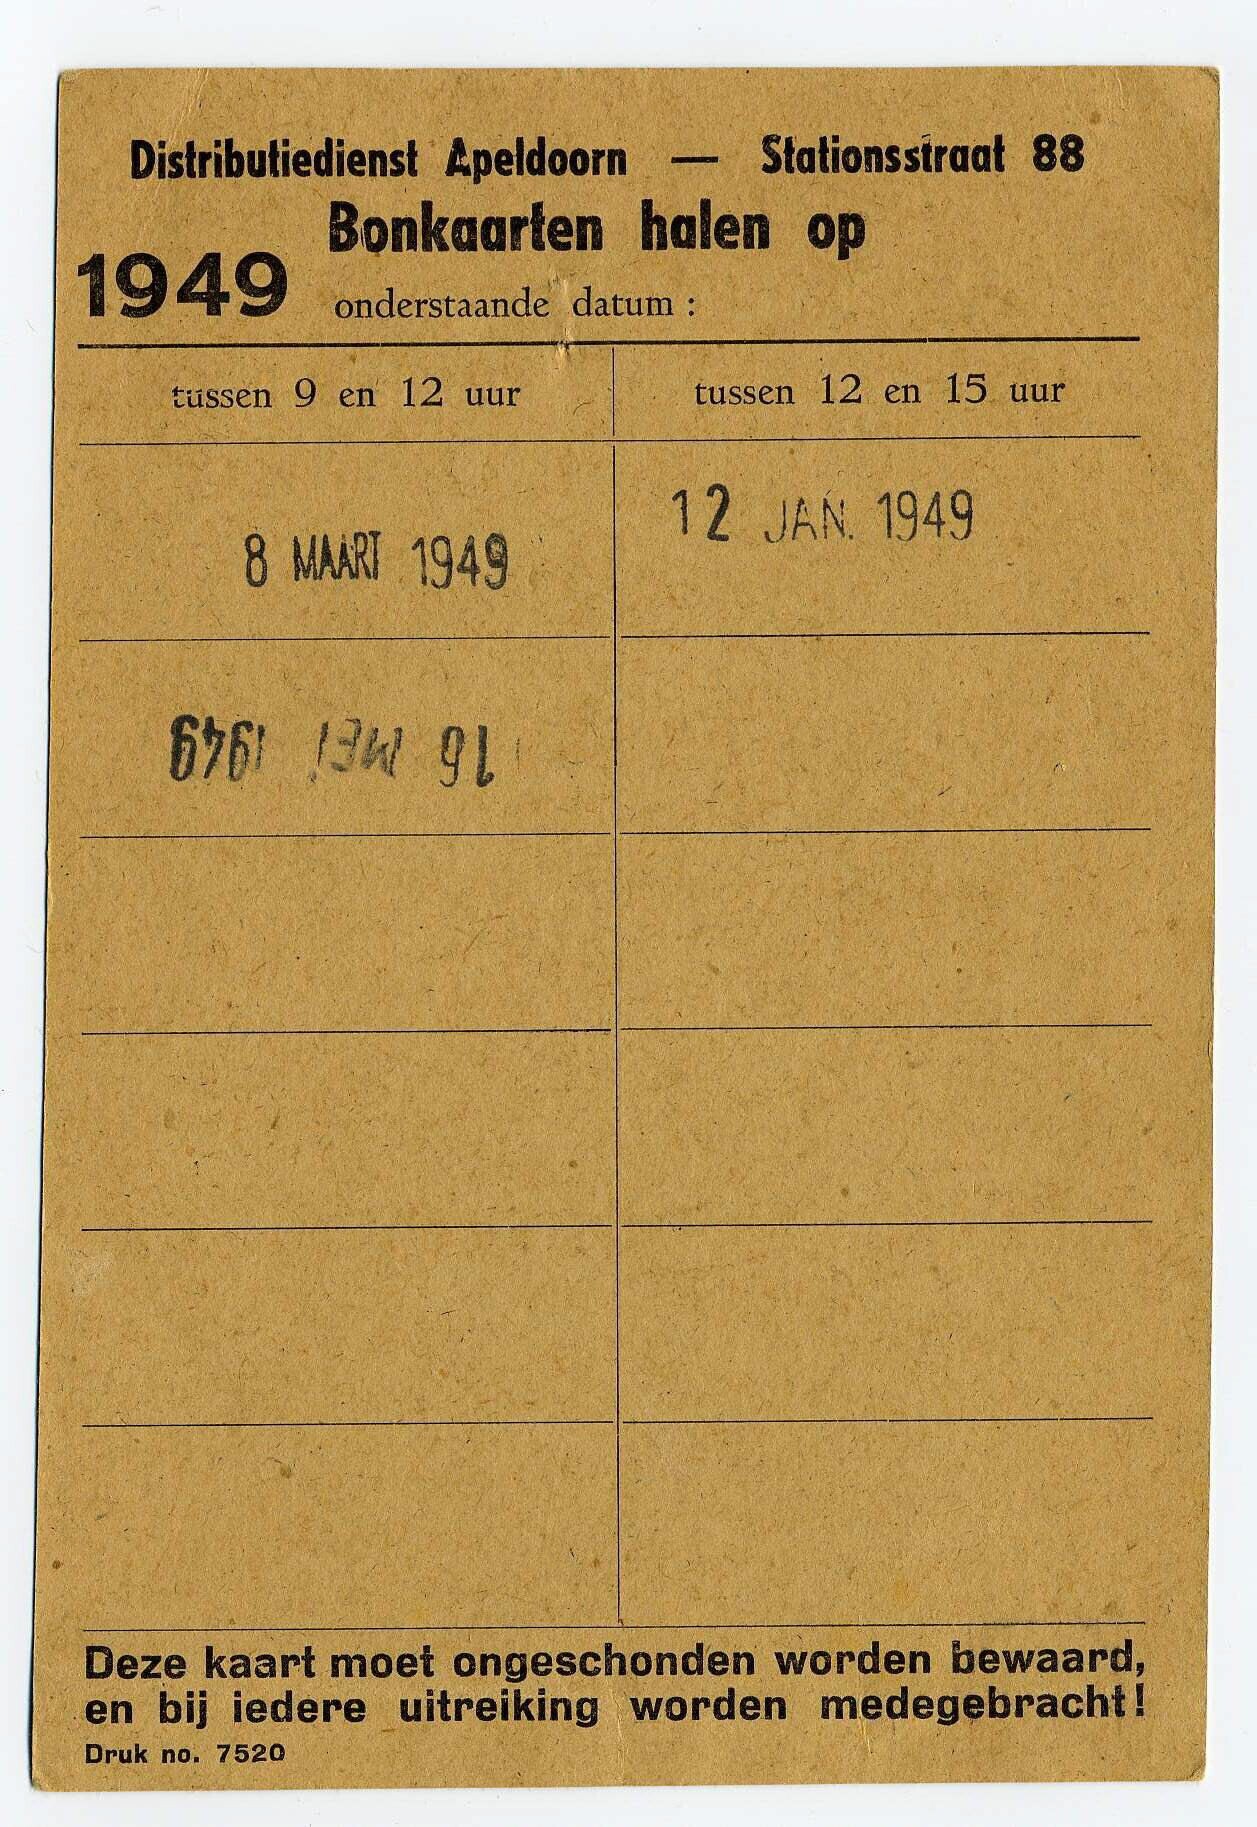 Distributiedienst Apeldoorn — Stationsstraat 88
Bonkaarten halen op
1949 onderstaande datum :
tussen 9 en 12 uur
tussen 12 en 15 uur
8 MAART 1949
12 JAN. 1949
16 MEI 1949
Deze kaart moet ongeschonden worden bewaard,
en bij iedere uitreiking worden medegebracht!
Druk no. 7520